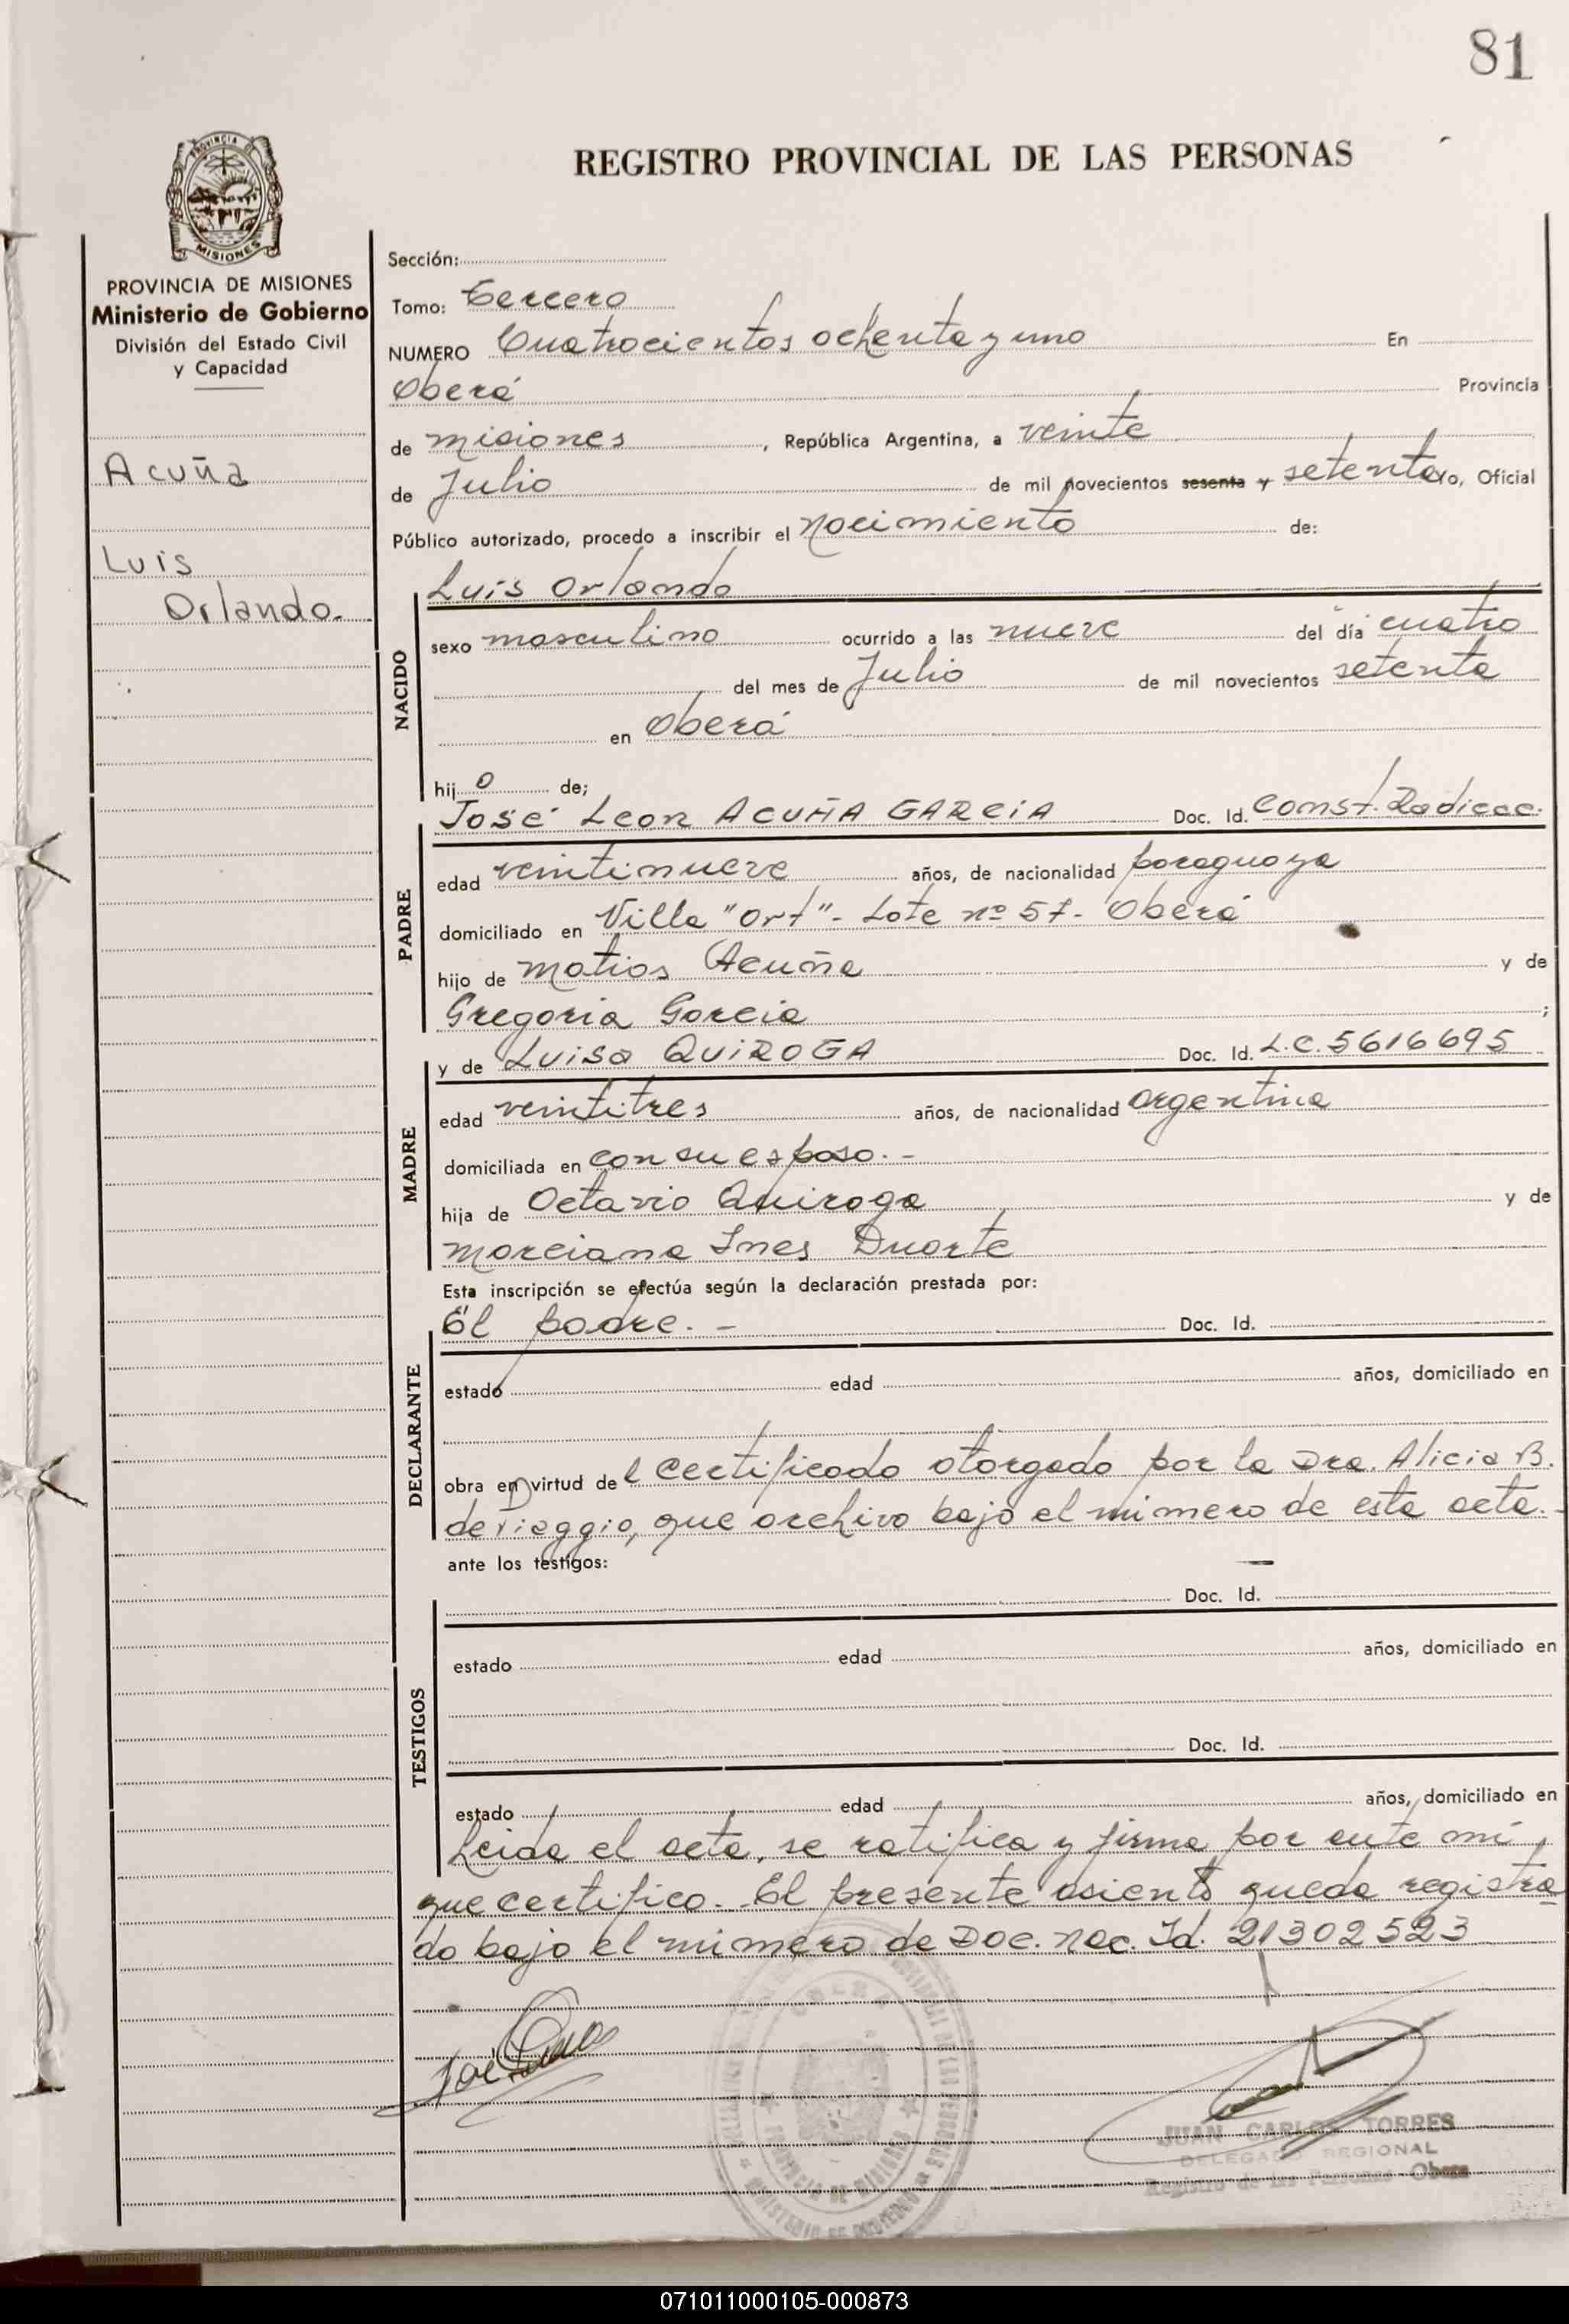 81
PROVINCIA DE
MISIONES
REGISTRO PROVINCIAL DE LAS PERSONAS
PROVINCIA DE MISIONES
Ministerio de Gobierno
División del Estado Civil
y Capacidad
Acuña
Luis
Orlando.
Sección:
Tomo: Tercero
NUMERO Cuatrocientos ochenta y uno En
Oberá Provincia
de misiones, República Argentina, a veinte
de Julio de mil novecientos sesenta y setenta Yo, Oficial
Público autorizado, procedo a inscribir el nacimiento de:
Luis Orlando
NACIDO
sexo masculino ocurrido a las nueve del día cuatro
del mes de Julio de mil novecientos setenta
en Oberá
hijo de;
José Leon ACUÑA GARCIA Doc. Id. Const. Radicac.
PADRE
edad veintinueve años, de nacionalidad paraguaya
domiciliado en Villa "Ort" - Lote nº 57 - Oberá
hijo de Matias Acuña y de
Gregoria Garcia ;
y de Luisa QUIROGA Doc. Id. L.C. 5616695
MADRE
edad veintitres años, de nacionalidad argentina
domiciliada en con su esposo. -
hija de Octavio Quiroga y de
Marciana Ines Duarte
Esta inscripción se efectúa según la declaración prestada por:
El padre. - Doc. Id.
DECLARANTE
estado edad años, domiciliado en
obra en virtud del certificado otorgado por la Dra. Alicia B.
de que archivo bajo el número de esta acta. -
ante los testigos: —
Doc. Id.
TESTIGOS
estado edad años, domiciliado en
Doc. Id.
estado edad años, domiciliado en
Leida el acta, se ratifica y firma por ante mi,
que certifico. - El presente asiento queda registra
do bajo el número de Doc. nac. Id. 21302523
José
JUAN CARLOS TORRES
DELEGADO REGIONAL
Registro de las Personas - Obera
071011000105-000873